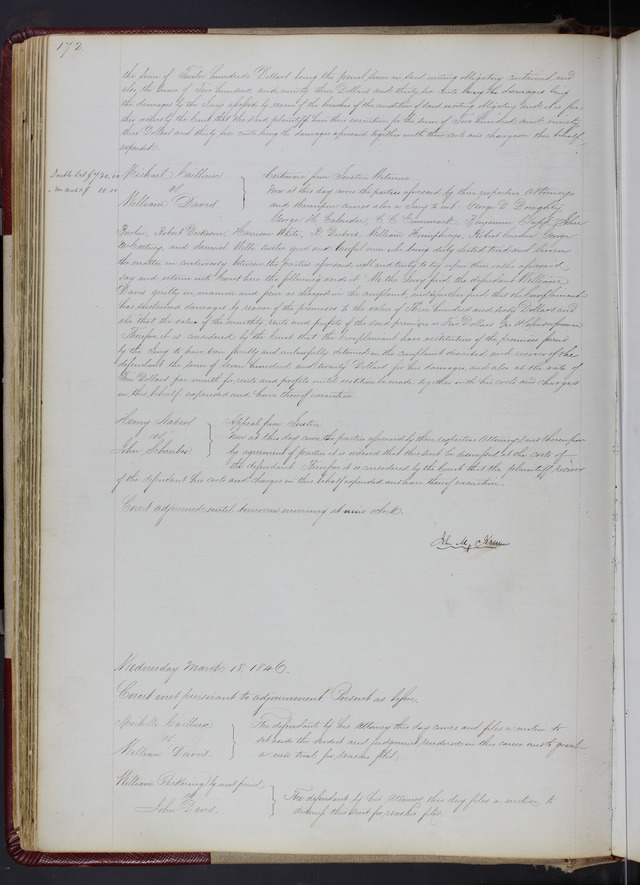 172.
the sum of Twelve hundred Dollars being the penal sum in said writing obligatory contained and
also the sum of Two hundred and ninety three Dollars and thirty six cents being the damages being
the damages by the Jury assessed by reason of the breaches of the condition of said writing obligatory and it is fur-
ther ordered by the Court that the said plaintiff have their execution for the sum of Two hundred and ninety
three Dollars and thirty six cents being the damages aforesaid together with their costs and charges in this behalf
expended.
Michael
vs
William Davis
Certiorari from Justice
Now at this day come the parties aforesaid by their respective Attorneys
and thereupon comes also a Jury to wit George D Doughty
George H. Calender, Benjamin John
Robert Dickson, Harrison White, William Humphreys, Robert George
McCartney, and Samuel Wells twelve good and lawful men who being duly elected tried and sworn
the matter in controversy between the parties aforesaid well and truly to try upon their oaths aforesaid
say and return into Court here the following verdict We the Jury find the defendant William
Davis guilty in manner and form as charged in the complaint, and further find that the Complainant
has sustained damages by reason of the premises to the value of Three hundred and sixty Dollars and
also that the value of the monthly rents and profits of the said premises is Five Dollars Foreman
Therefore it is considered by the Court that the Complainant have restitution of the premises found
by the Jury to have been forcibly and unlawfully detained in the complaint described and recover of the
defendant the sum of Seven hundred and twenty Dollars for his damages, and also at the rate of
Ten Dollars per month for rents and profits until restitution be made together with his costs and charges
in this behalf expended and have thereof execution.
Henry
vs
John Schreiber
Appeal from Justice
Now at this day come the parties aforesaid by their respective Attorneys and thereupon
by agreement of parties it is ordered that this suit be dismissed at the costs of
the defendant. Therefore it is considered by the Court that the plaintiff recover
of the defendant his costs and charges in this behalf expended and have thereof execution.
Court adjourned until tomorrow morning at nine oclock
Jn. M.
Wednesday March 18, 1846.
Court met pursuant to adjournment Present as before
vs
William Davis.
The defendant by his Attorney this day comes and files a motion to
set aside the verdict and judgment rendered in this cause and to grant
a new trial for reasons filed.
William Pickering by next friend
vs
John Davis.
The defendant by his Attorney this day files a motion to
dismiss this suit for reasons filed.